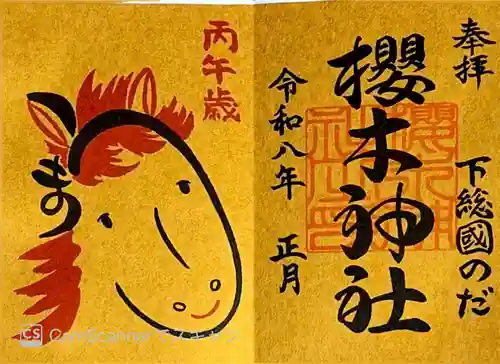 奉拝
下総國のだ
櫻木神社
令和八年 正月
丙午歳
うま
CS CamScanner でスキャン